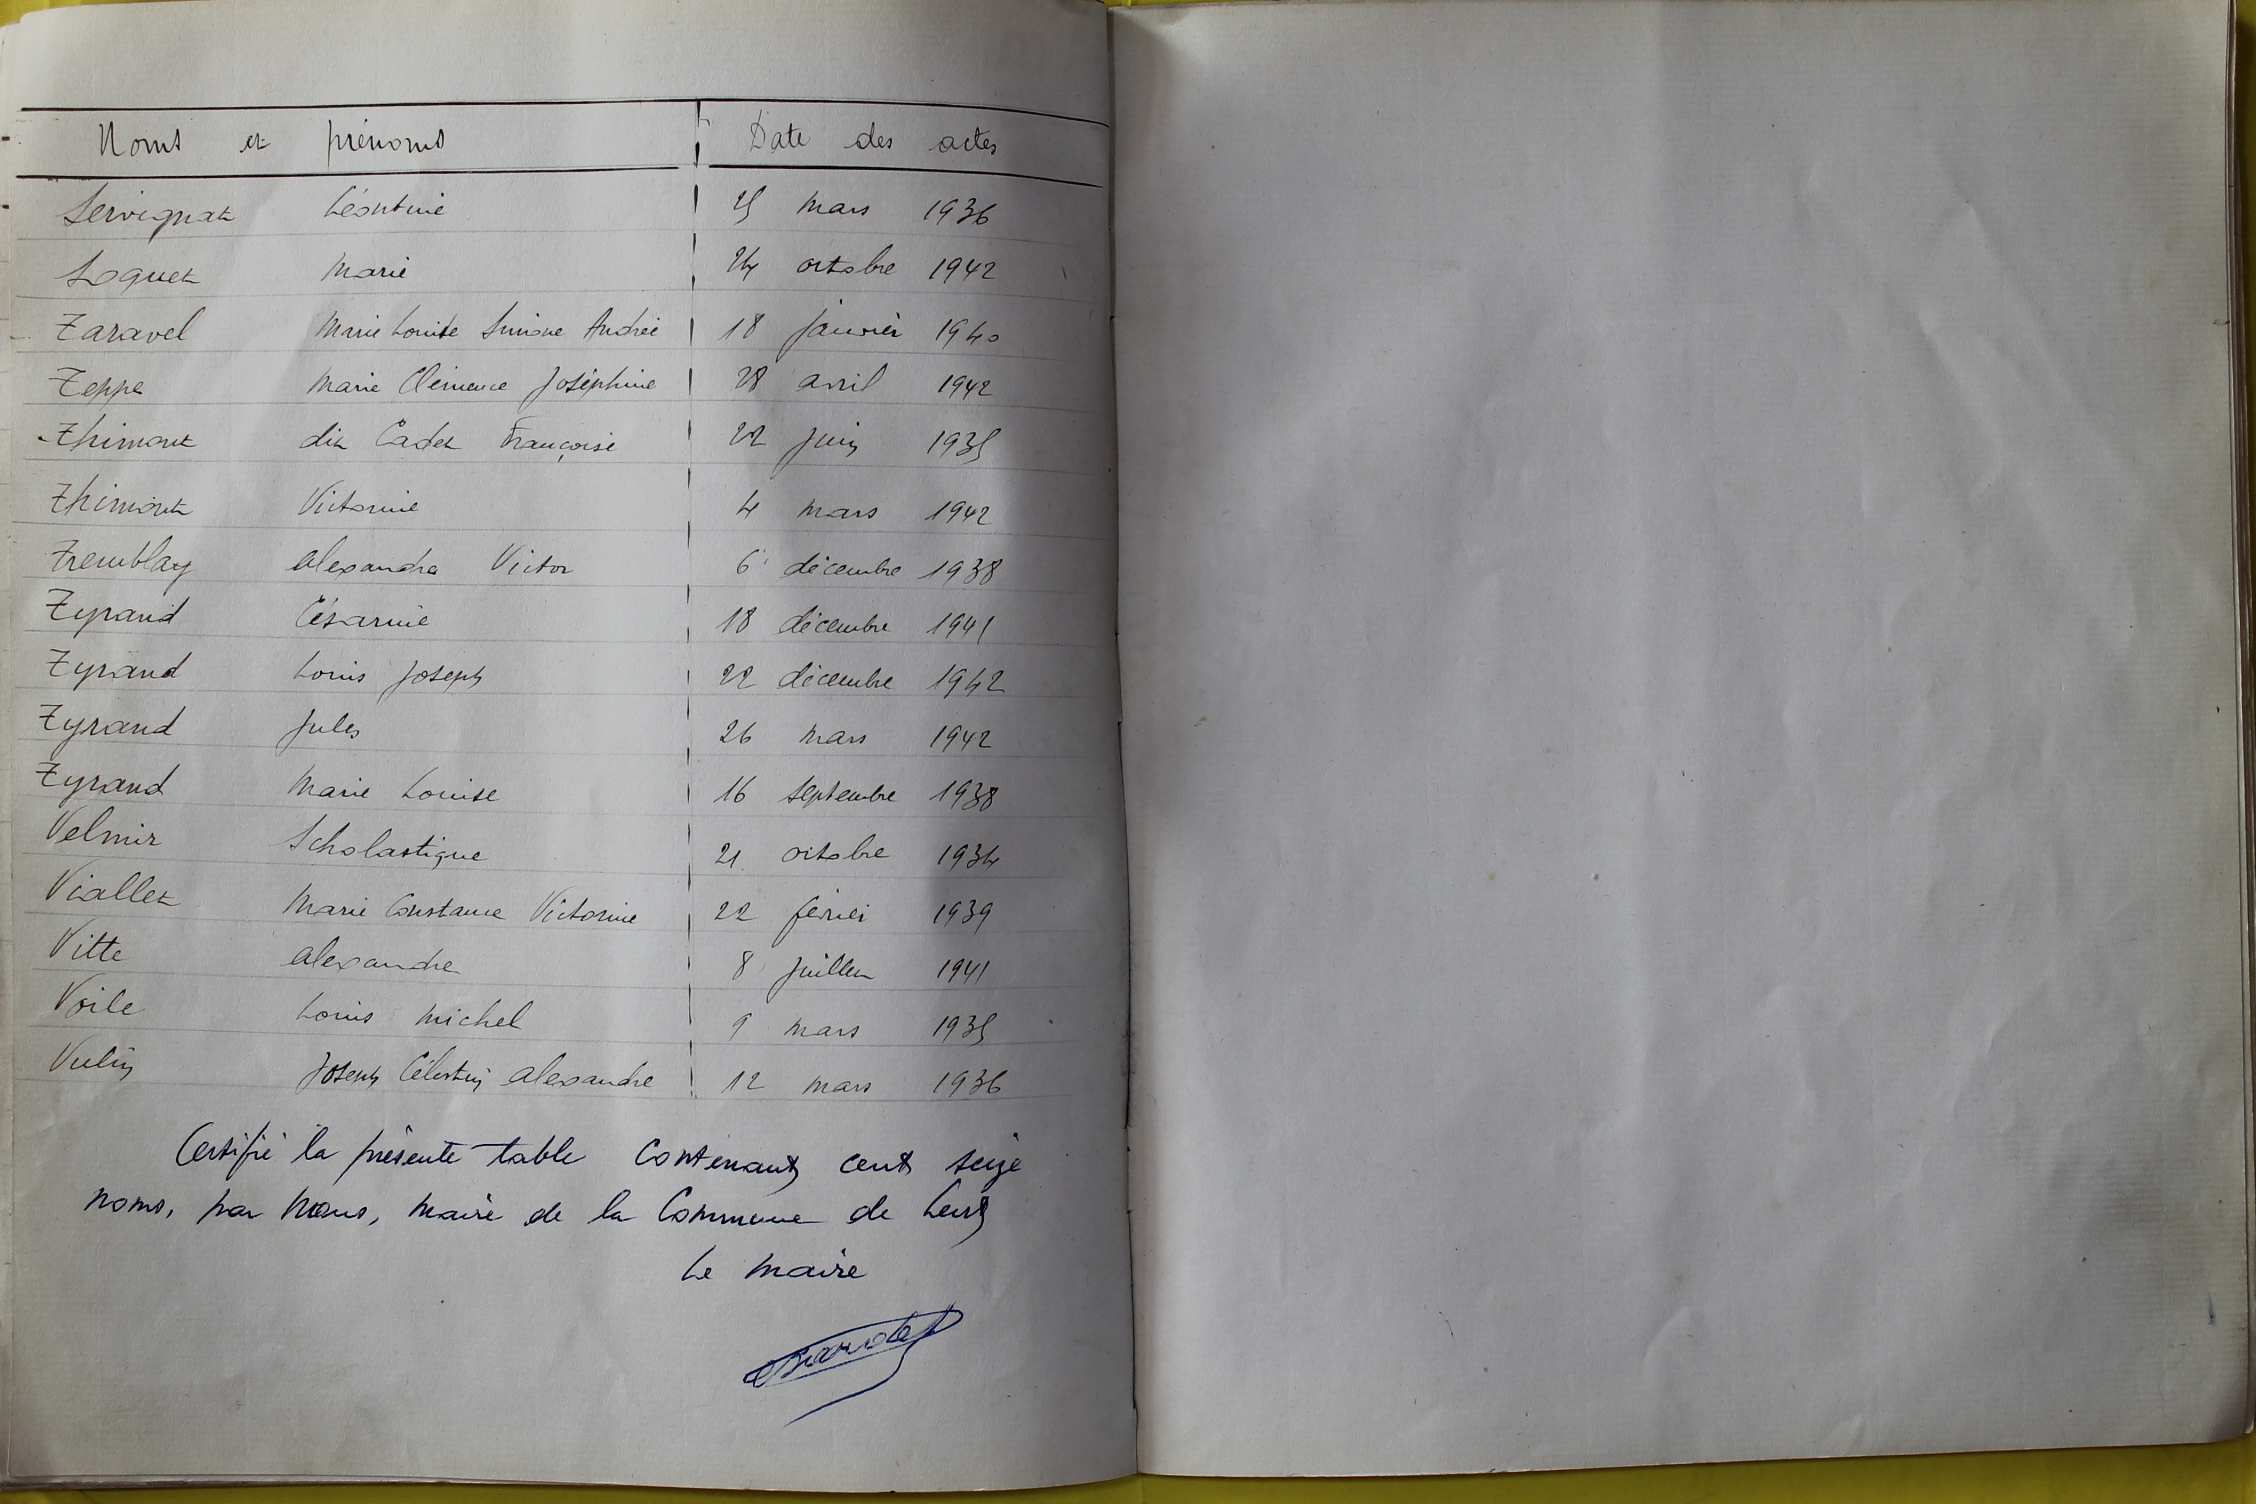 Noms et prénoms Date des actes
Servignat Léontine 25 mars 1936
Soquet Marie 24 octobre 1942
Taravel Marie Louise Simone Andrée 18 janvier 1940
Teppe Marie Clémence Joséphine 28 avril 1942
Thimont dit Cadet Françoise 22 juin 1935
Thimont Victorine 4 mars 1942
Tremblay alexandre Victor 6 décembre 1938
Tyrand Césarine 18 décembre 1941
Tyrand Louis Joseph 22 décembre 1942
Tyrand Jules 26 mars 1942
Tyrand Marie Louise 16 septembre 1938
Velmir Scholastique 21 octobre 1934
Viallet Marie Constance Victorine 22 février 1939
Vitte alexandre 8 juillet 1941
Voile Louis Michel 9 mars 1935
Vulin Joseph Célestin alexandre 12 mars 1936
Certifié la présente table contenant cent seize
noms, par Nous, maire de la Commune de
Le Maire